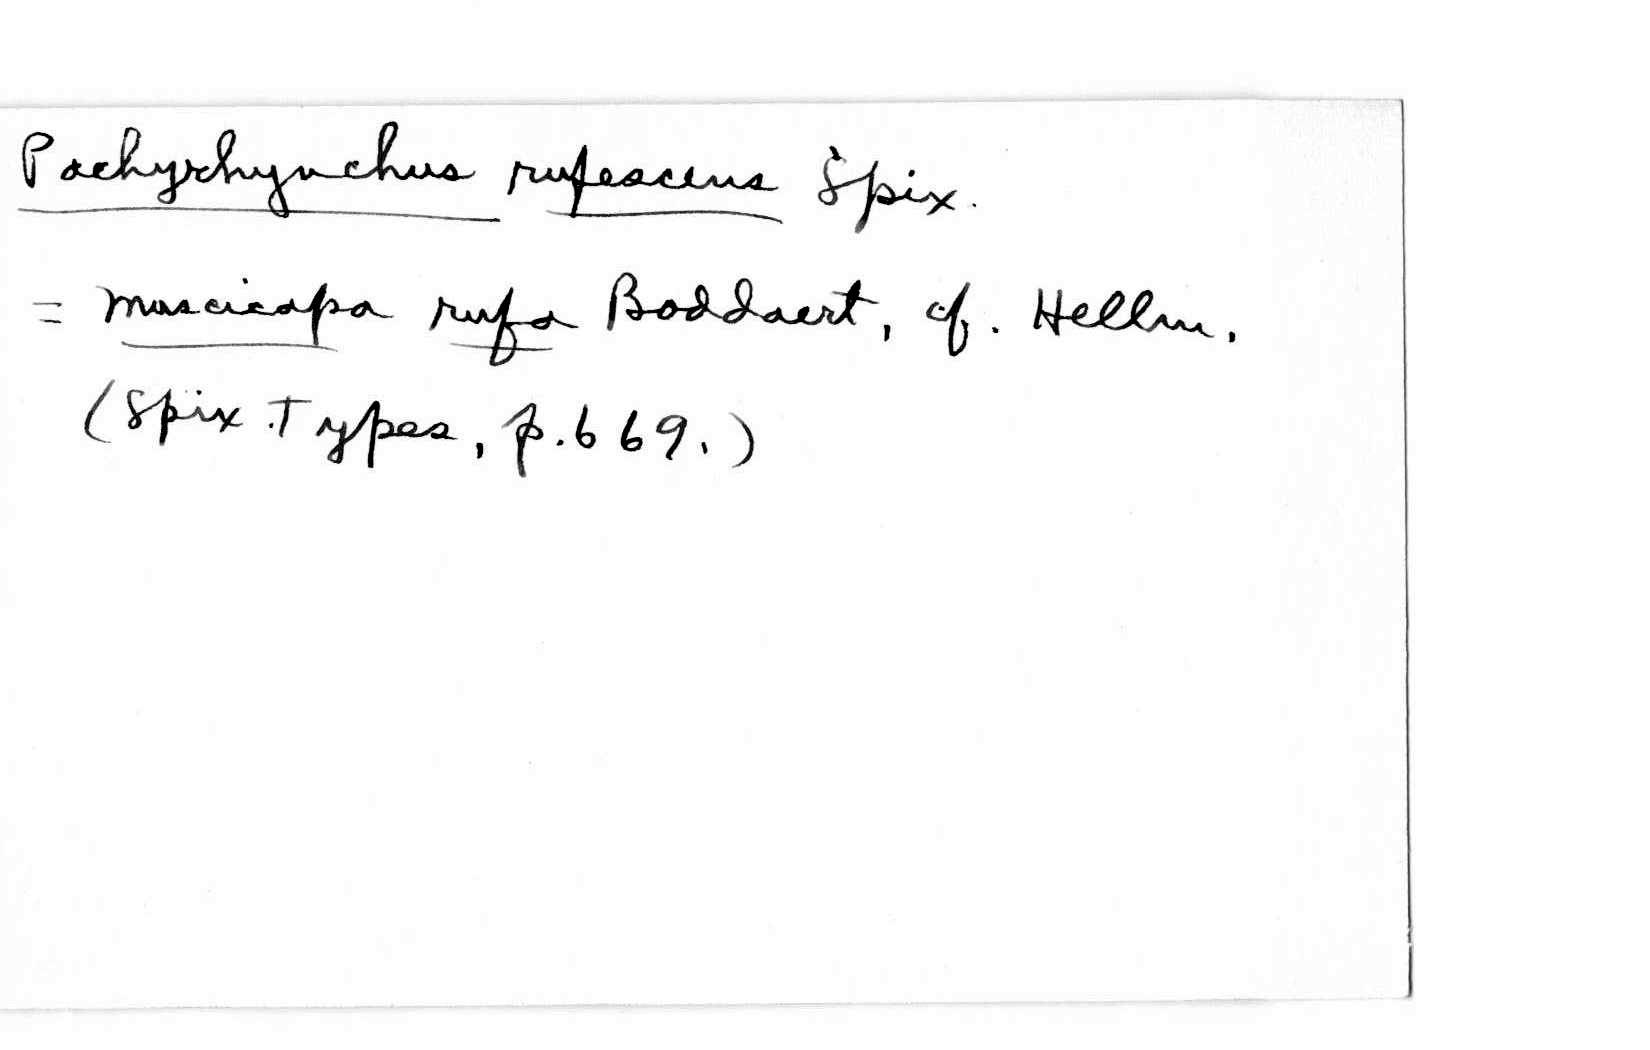 Pachyrhynchus rufescens Spix.
= Muscicapa rufa Boddaert, cf. Hellm.
(Spix Types, p. 669.)